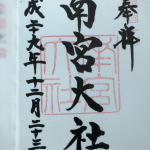 奉拝
南宮大社
平成二十九年十二月二十三日